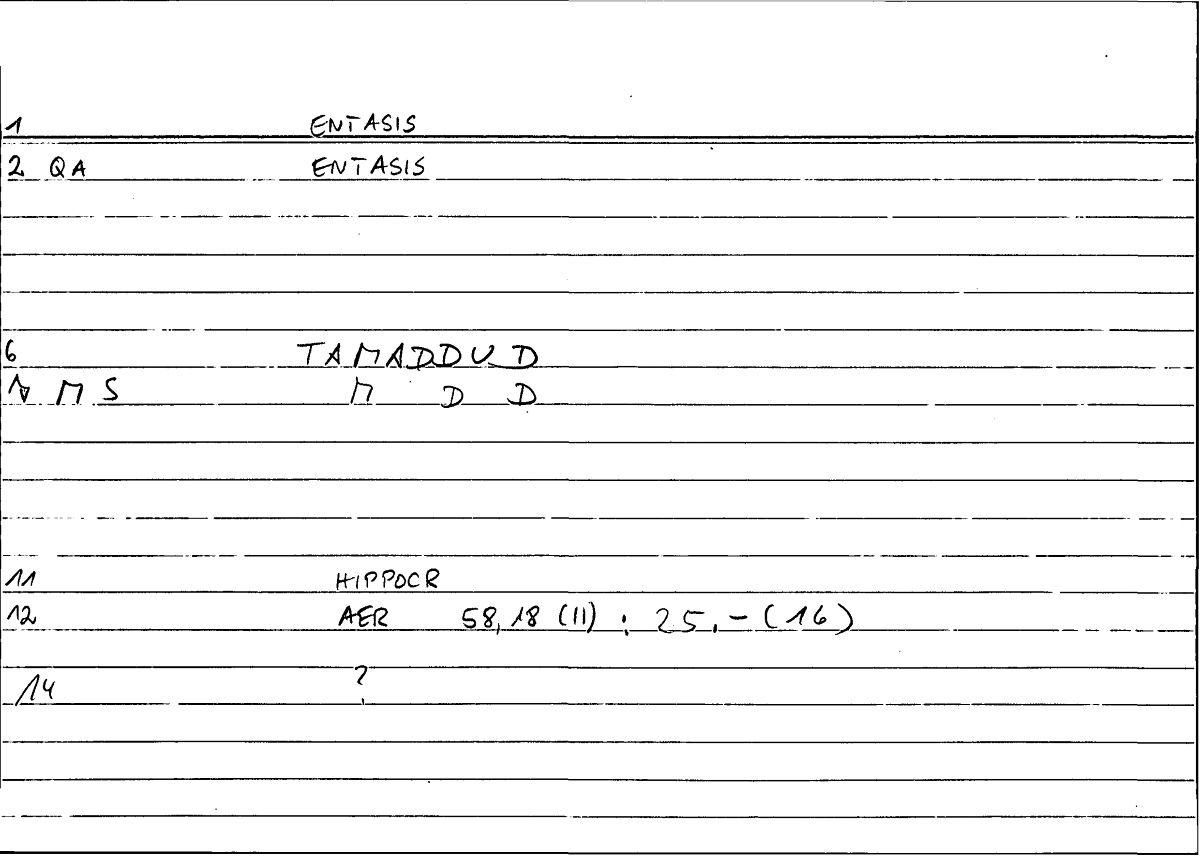 1 ENTASIS
2 QA ENTASIS
6 TAMADDUD
MS M D D
11 HIPPOCR
12 AER 58,18 (11) : 25.-(16)
14 ?